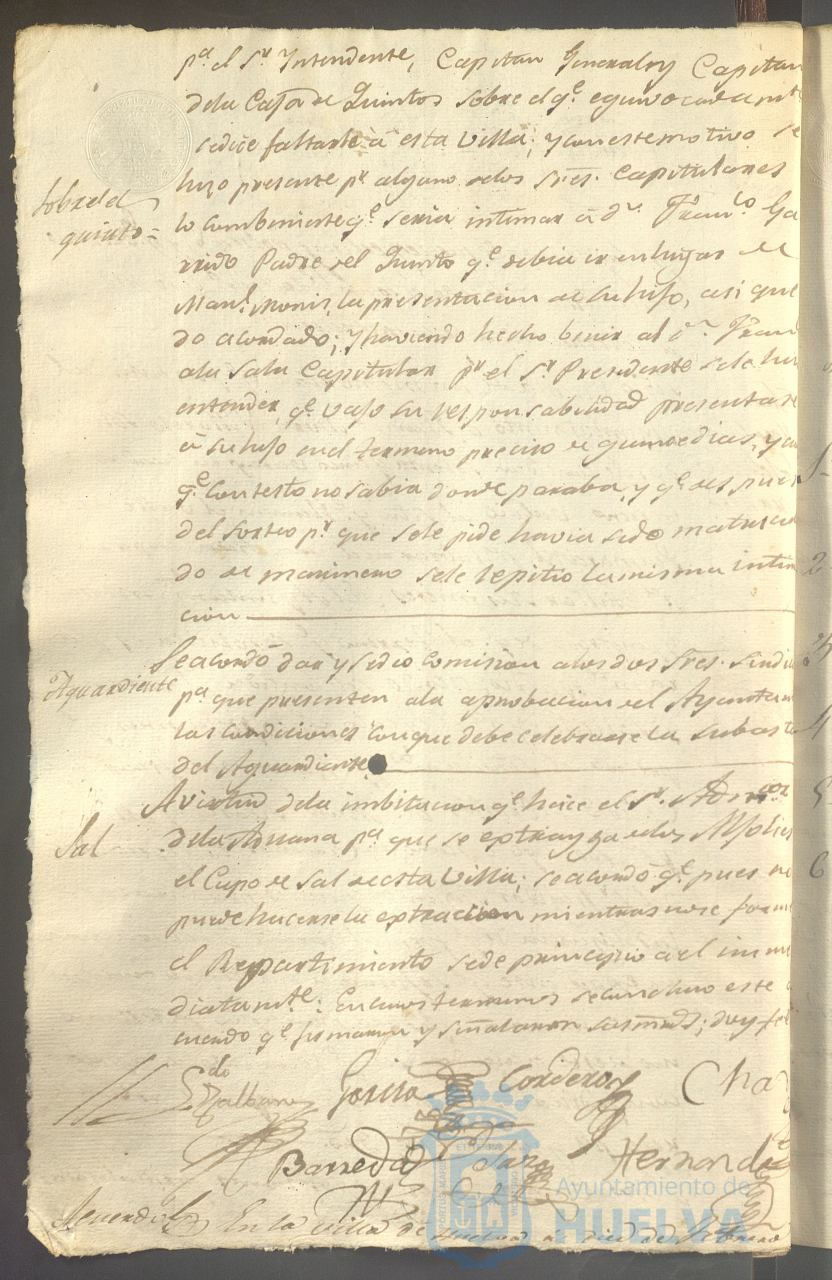 pª el Sr Yntendente, Capitan General y Capitan
dela Caja de Quintos sobre el qe equivocadamte
se dice faltarle â esta Villa; y con este motivo se
hizo presente pr alguno delos Sres. Capitulares
Sobre el
quinto =
lo combeniente qe seria intimar â Dn Franco Ga
rrido Padre del Quinto qe debia ir en lugar de
Manl Monis, la presentacion de su hijo, asi que
do acordado; y haviendo hecho benir al Dn Fran
ala Sala Capitular pr el Sr Presidente sele hi
entender, qe vajo su responsabilidad presentase
â su hijo en el termino preciso de quince dias, y au
qe contesto no sabia donde paraba, y qe despues
del sorteo pr que sele pide havia sido matricu
do de marinero sele repitio la misma intim
cion
Aguardiente
Se acordó dar y se dio comision alos dos Sres. Sindi
pª que presenten ala aprobacion del Ayuntam
las condiciones con que debe celebrarse la Subasta
del Aguardiente
Sal
A virtud dela imbitacion qe hace el Sr. Admor
dela Aduana pª que se extrayga delos Alfolies
el Cupo de Sal de esta Villa; se acordó qe pues no
puede hacerse la extraccion mientras no se forme
el Repartimiento se de principio a el inme
diatamte: En cuios terminos se concluio este a
cuerdo qe firmaron y señalaron sus mds; doy fe
Garcia Cordero Cha
Barreda Hernande
Acuerdo En la villa de Huelva a diez de Febrero
Ayuntamiento de
HUELVA